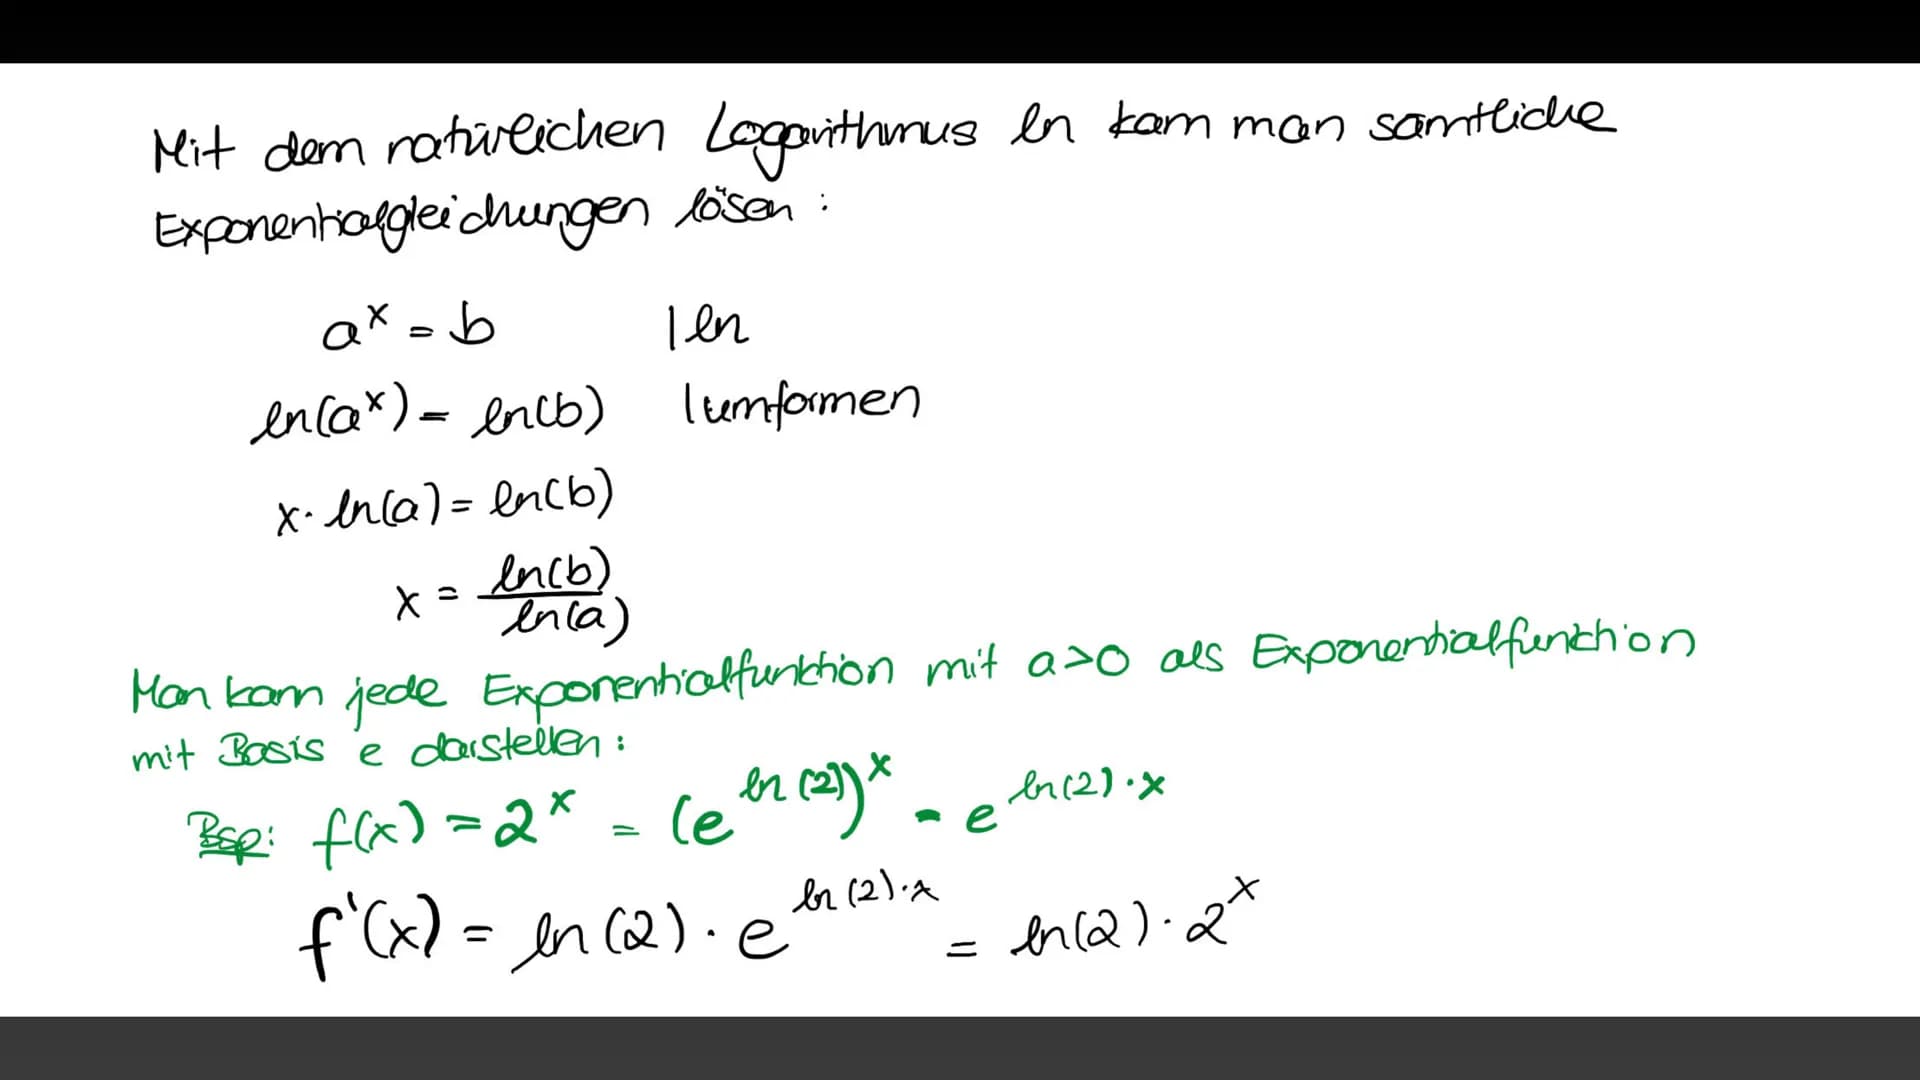 Mit dem natürlichen Logarithmus ln kann man sämtliche
Exponentialgleichungen lösen:
a^x = b | ln
ln(a^x) = ln(b) | umformen
x · ln(a) = ln(b)
x = ln(b) / ln(a)
Man kann jede Exponentialfunktion mit a>0 als Exponentialfunktion
mit Basis e darstellen:
Bsp: f(x) = 2^x = (e^ln(2))^x = e^ln(2)·x
f'(x) = ln(2) · e^ln(2)·x = ln(2) · 2^x